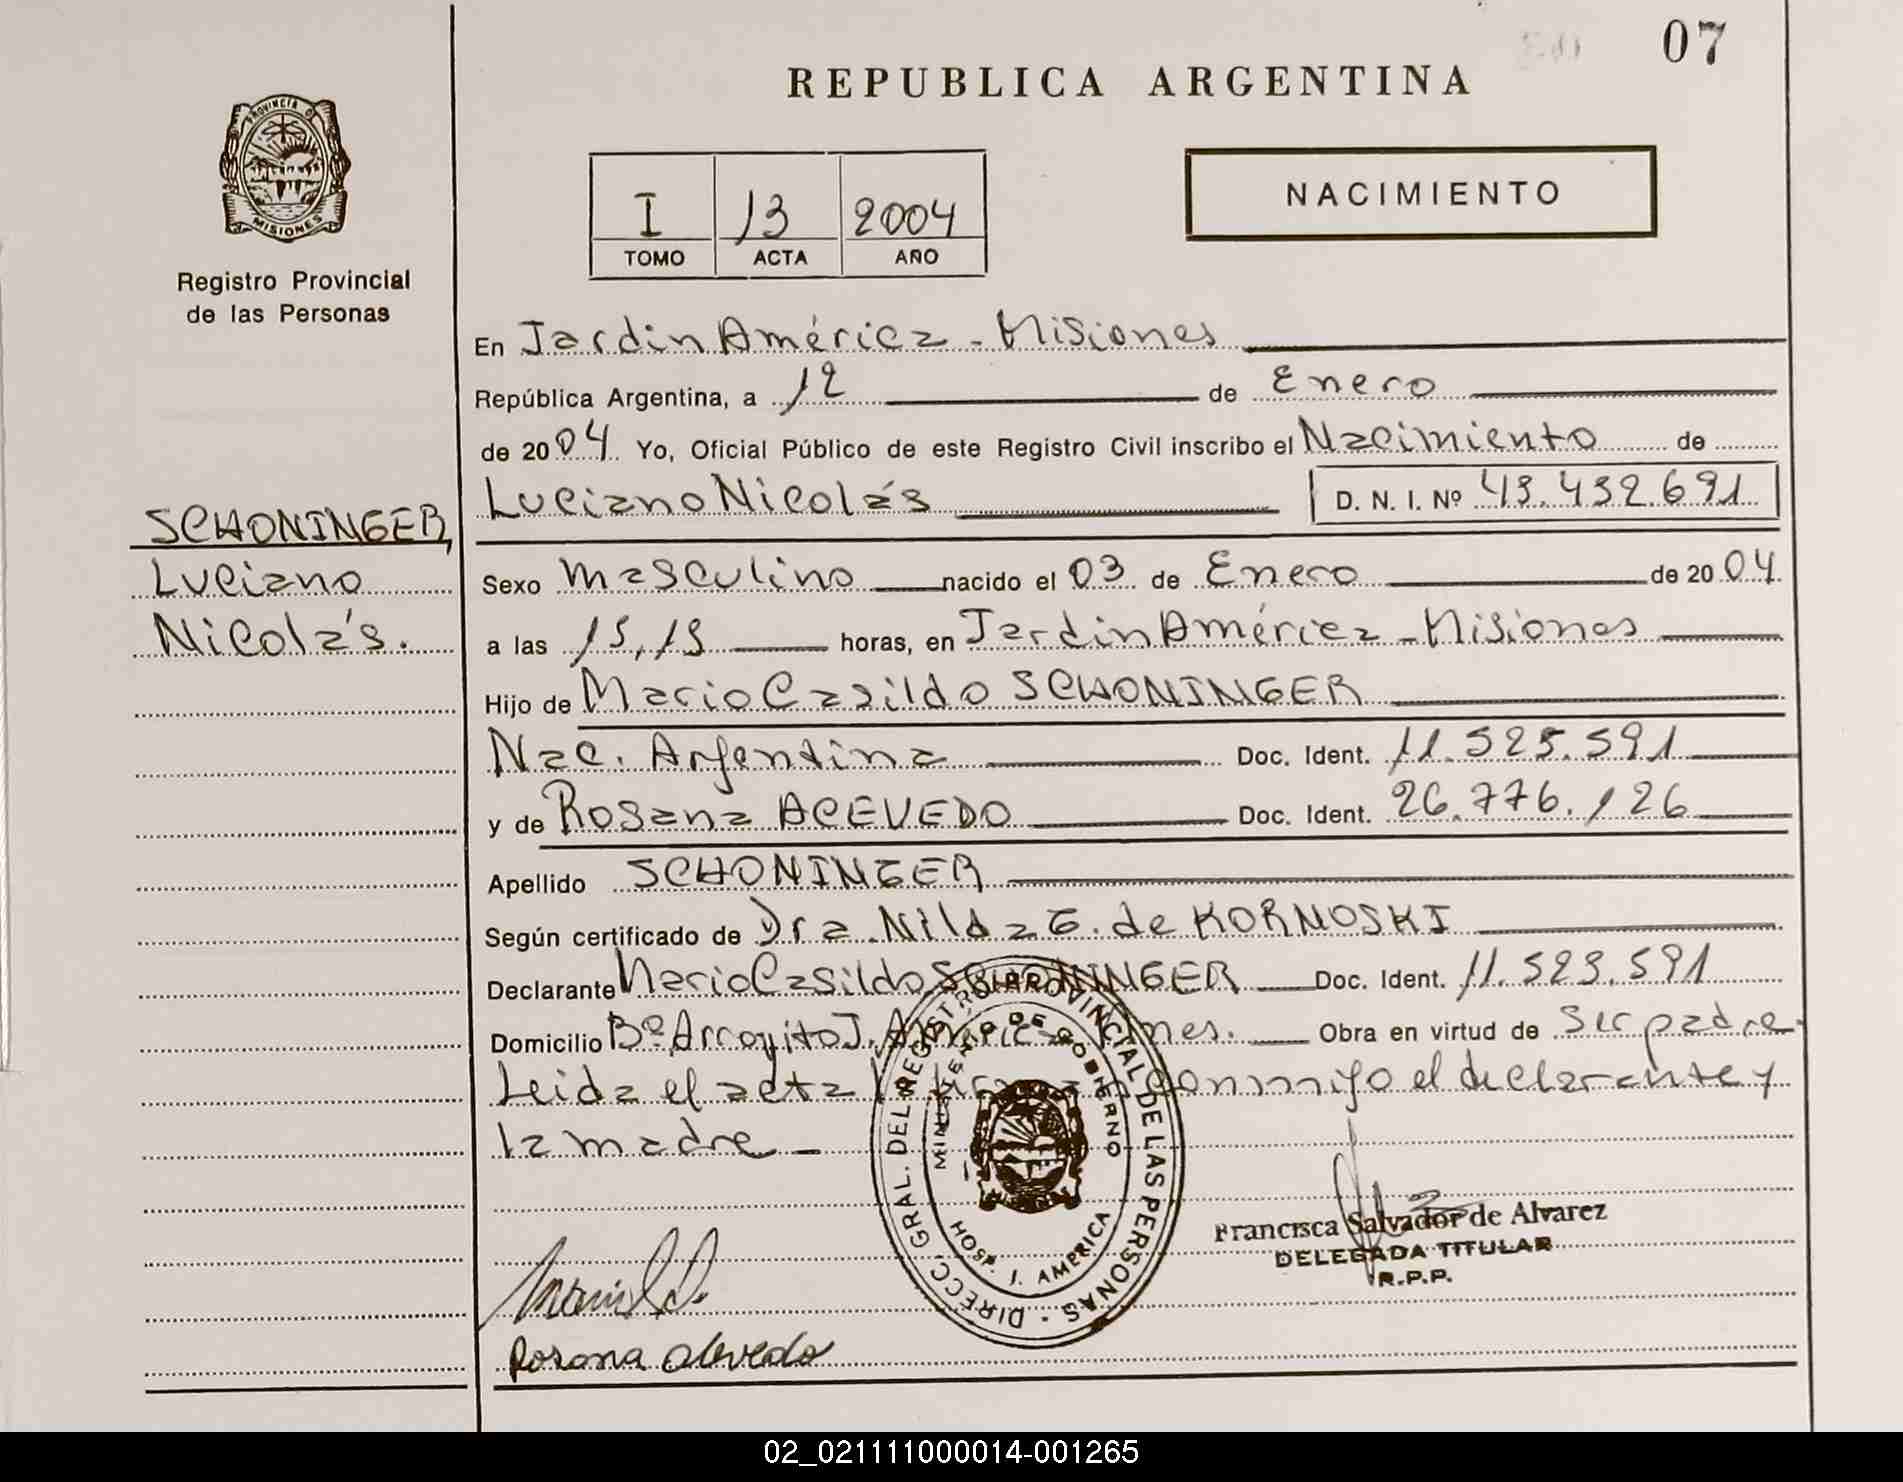 07
REPUBLICA ARGENTINA
PROVINCIA D
MISIONES
Registro Provincial
de las Personas
I 13 2004
TOMO ACTA AÑO
NACIMIENTO
En Jardin América - Misiones
República Argentina, a 12 de Enero
de 2004 Yo, Oficial Público de este Registro Civil inscribo el Nacimiento de
Luciano Nicolás D. N. I. Nº 43.432.691
SCHONINGER,
Luciano
Nicolás.
Sexo Masculino nacido el 03 de Enero de 2004
a las 15,15 horas, en Jardin América - Misiones
Hijo de Mario Casildo SCHONINGER
Nac. Argentina Doc. Ident. 11.525.591
y de Rosana ACEVEDO Doc. Ident. 26.776.126
Apellido SCHONINGER
Según certificado de Dra. Nilda G. de KORNOSKI
Declarante Mario Casildo SCHONINGER Doc. Ident. 11.523.591
Domicilio Bº Arroyito J. América Mnes. Obra en virtud de ser padre.
Leida el acta conmigo el declarante y
la madre -
DIRECC. GRAL. DEL REGISTRO PROVINCIAL DE LAS PERSONAS
MINISTERIO DE GOBIERNO
HOSP. J. AMERICA
Francisca Salvador de Alvarez
DELEGADA TITULAR
R.P.P.
Rosana Acevedo
02_021111000014-001265